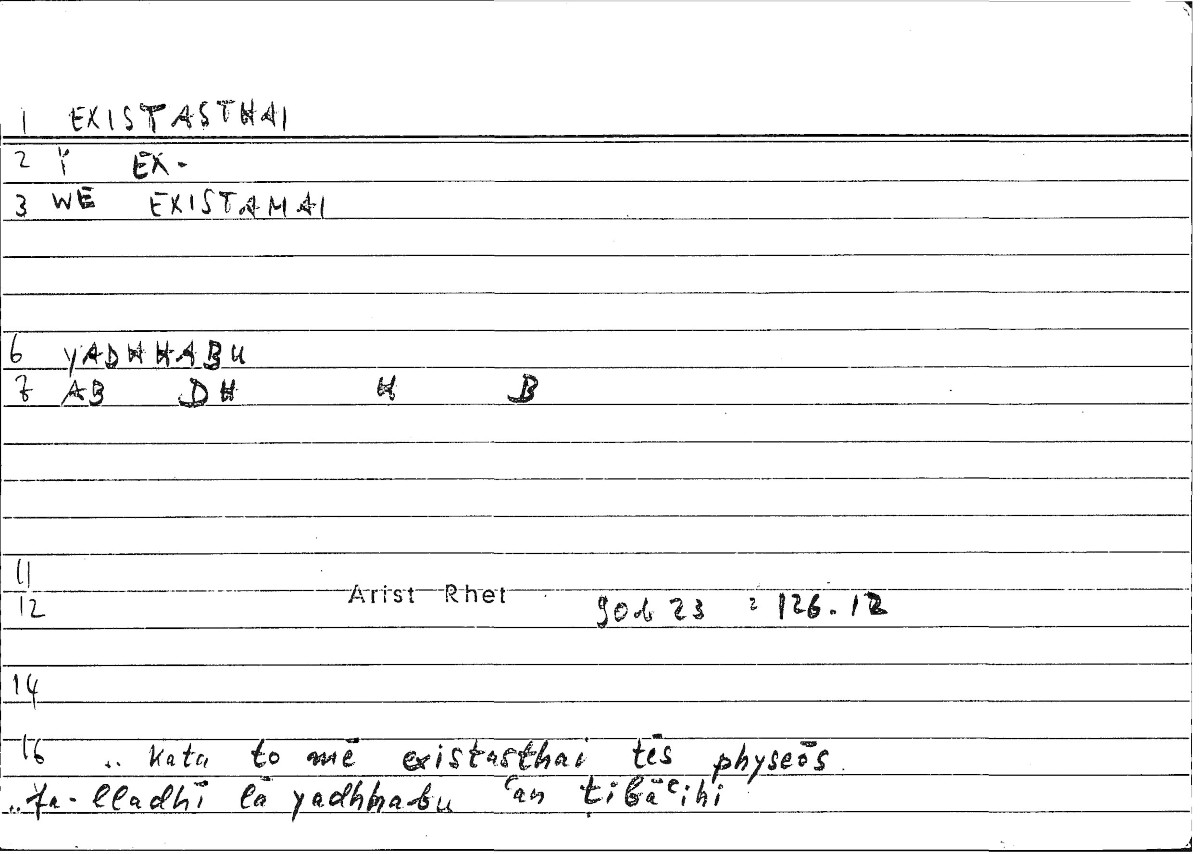 1 EXISTASTHAI
2 Y EX-
3 WE EXISTAMAI
6 YADHHABU
7 AB DH H B
11
12 Arist Rhet 90b 23 = 126.12
14
16 .. kata to mē existasthai tēs physeōs.
..fa-lladhī lā yadhhabu ʿan ṭibāʿihi